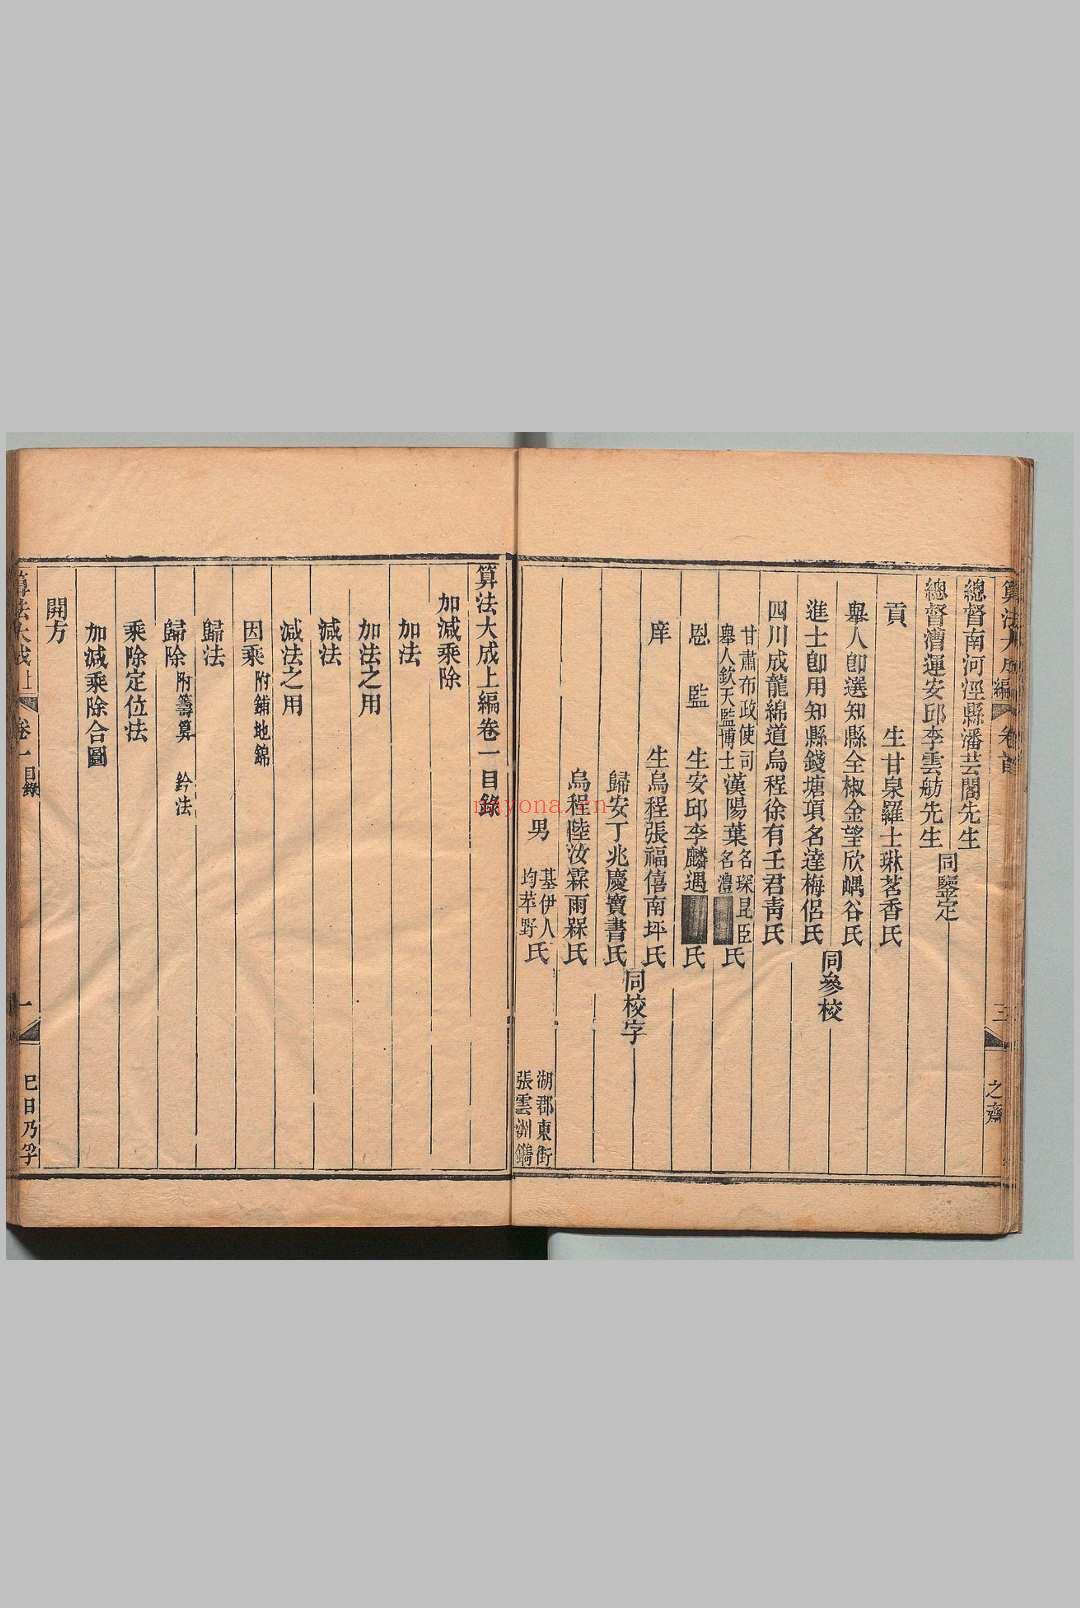 總督南河涇縣潘芸閣先生
總督漕運安邱李雲舫先生
同鑒定
貢生甘泉羅士琳茗香氏
舉人卽選知縣全椒金望欣嵎谷氏
進士卽用知縣錢塘項名達梅侶氏
同參校
四川成龍綿道烏程徐有壬君靑氏
甘肅布政使司
舉人欽天監博士
漢陽葉
名琛昆臣
名灃
氏
恩監生安邱李麟遇氏
庠生烏程張福僖南坪氏
歸安丁兆慶寶書氏
同校字
烏程陸汝霖雨槑氏
男
基伊人
均苹野
氏
湖郡東街
張雲洲鐫
算法大成上編卷一目錄
加減乘除
加法
加法之用
減法
減法之用
因乘附鋪地錦
歸法
歸除附籌算 鈐法
乘除定位法
加減乘除合圖
開方
算法大成上
卷一
目錄
一
巳日乃孚
nayona.cn